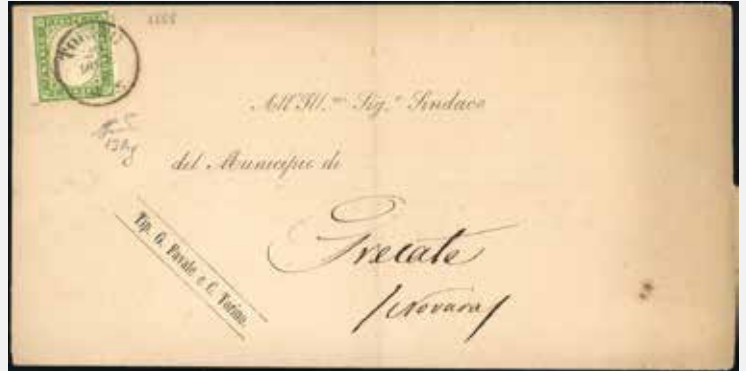 TORINO
All'Ill.mo Sig.r Sindaco
del Municipio di
Trecate
(Novara)
Tip. G. Favale e C. Torino.